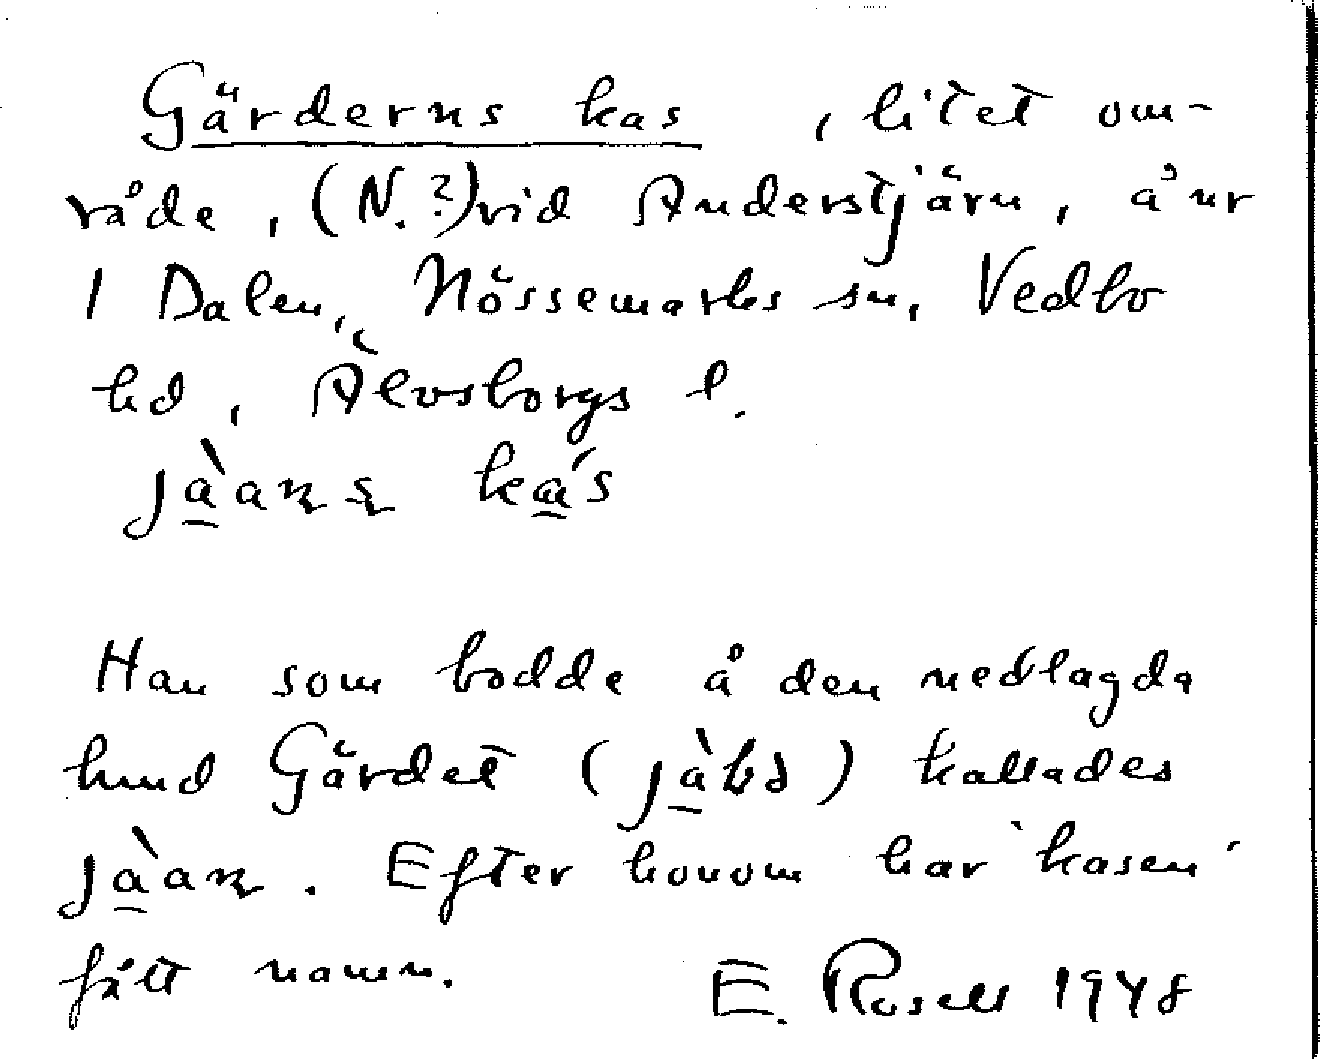 Gärderns kas , litet om-
råde, (N.?) vid Anderstjärn, å nr
1 Dalen, Nössemarks sn, Vedbo
hd, Älvsborgs l.
kas
Han som bodde å den nedlagda
lund Gärdet ( ) kallades
. Efter honom har 'kasen'
fått namn. E. Rosell 1948